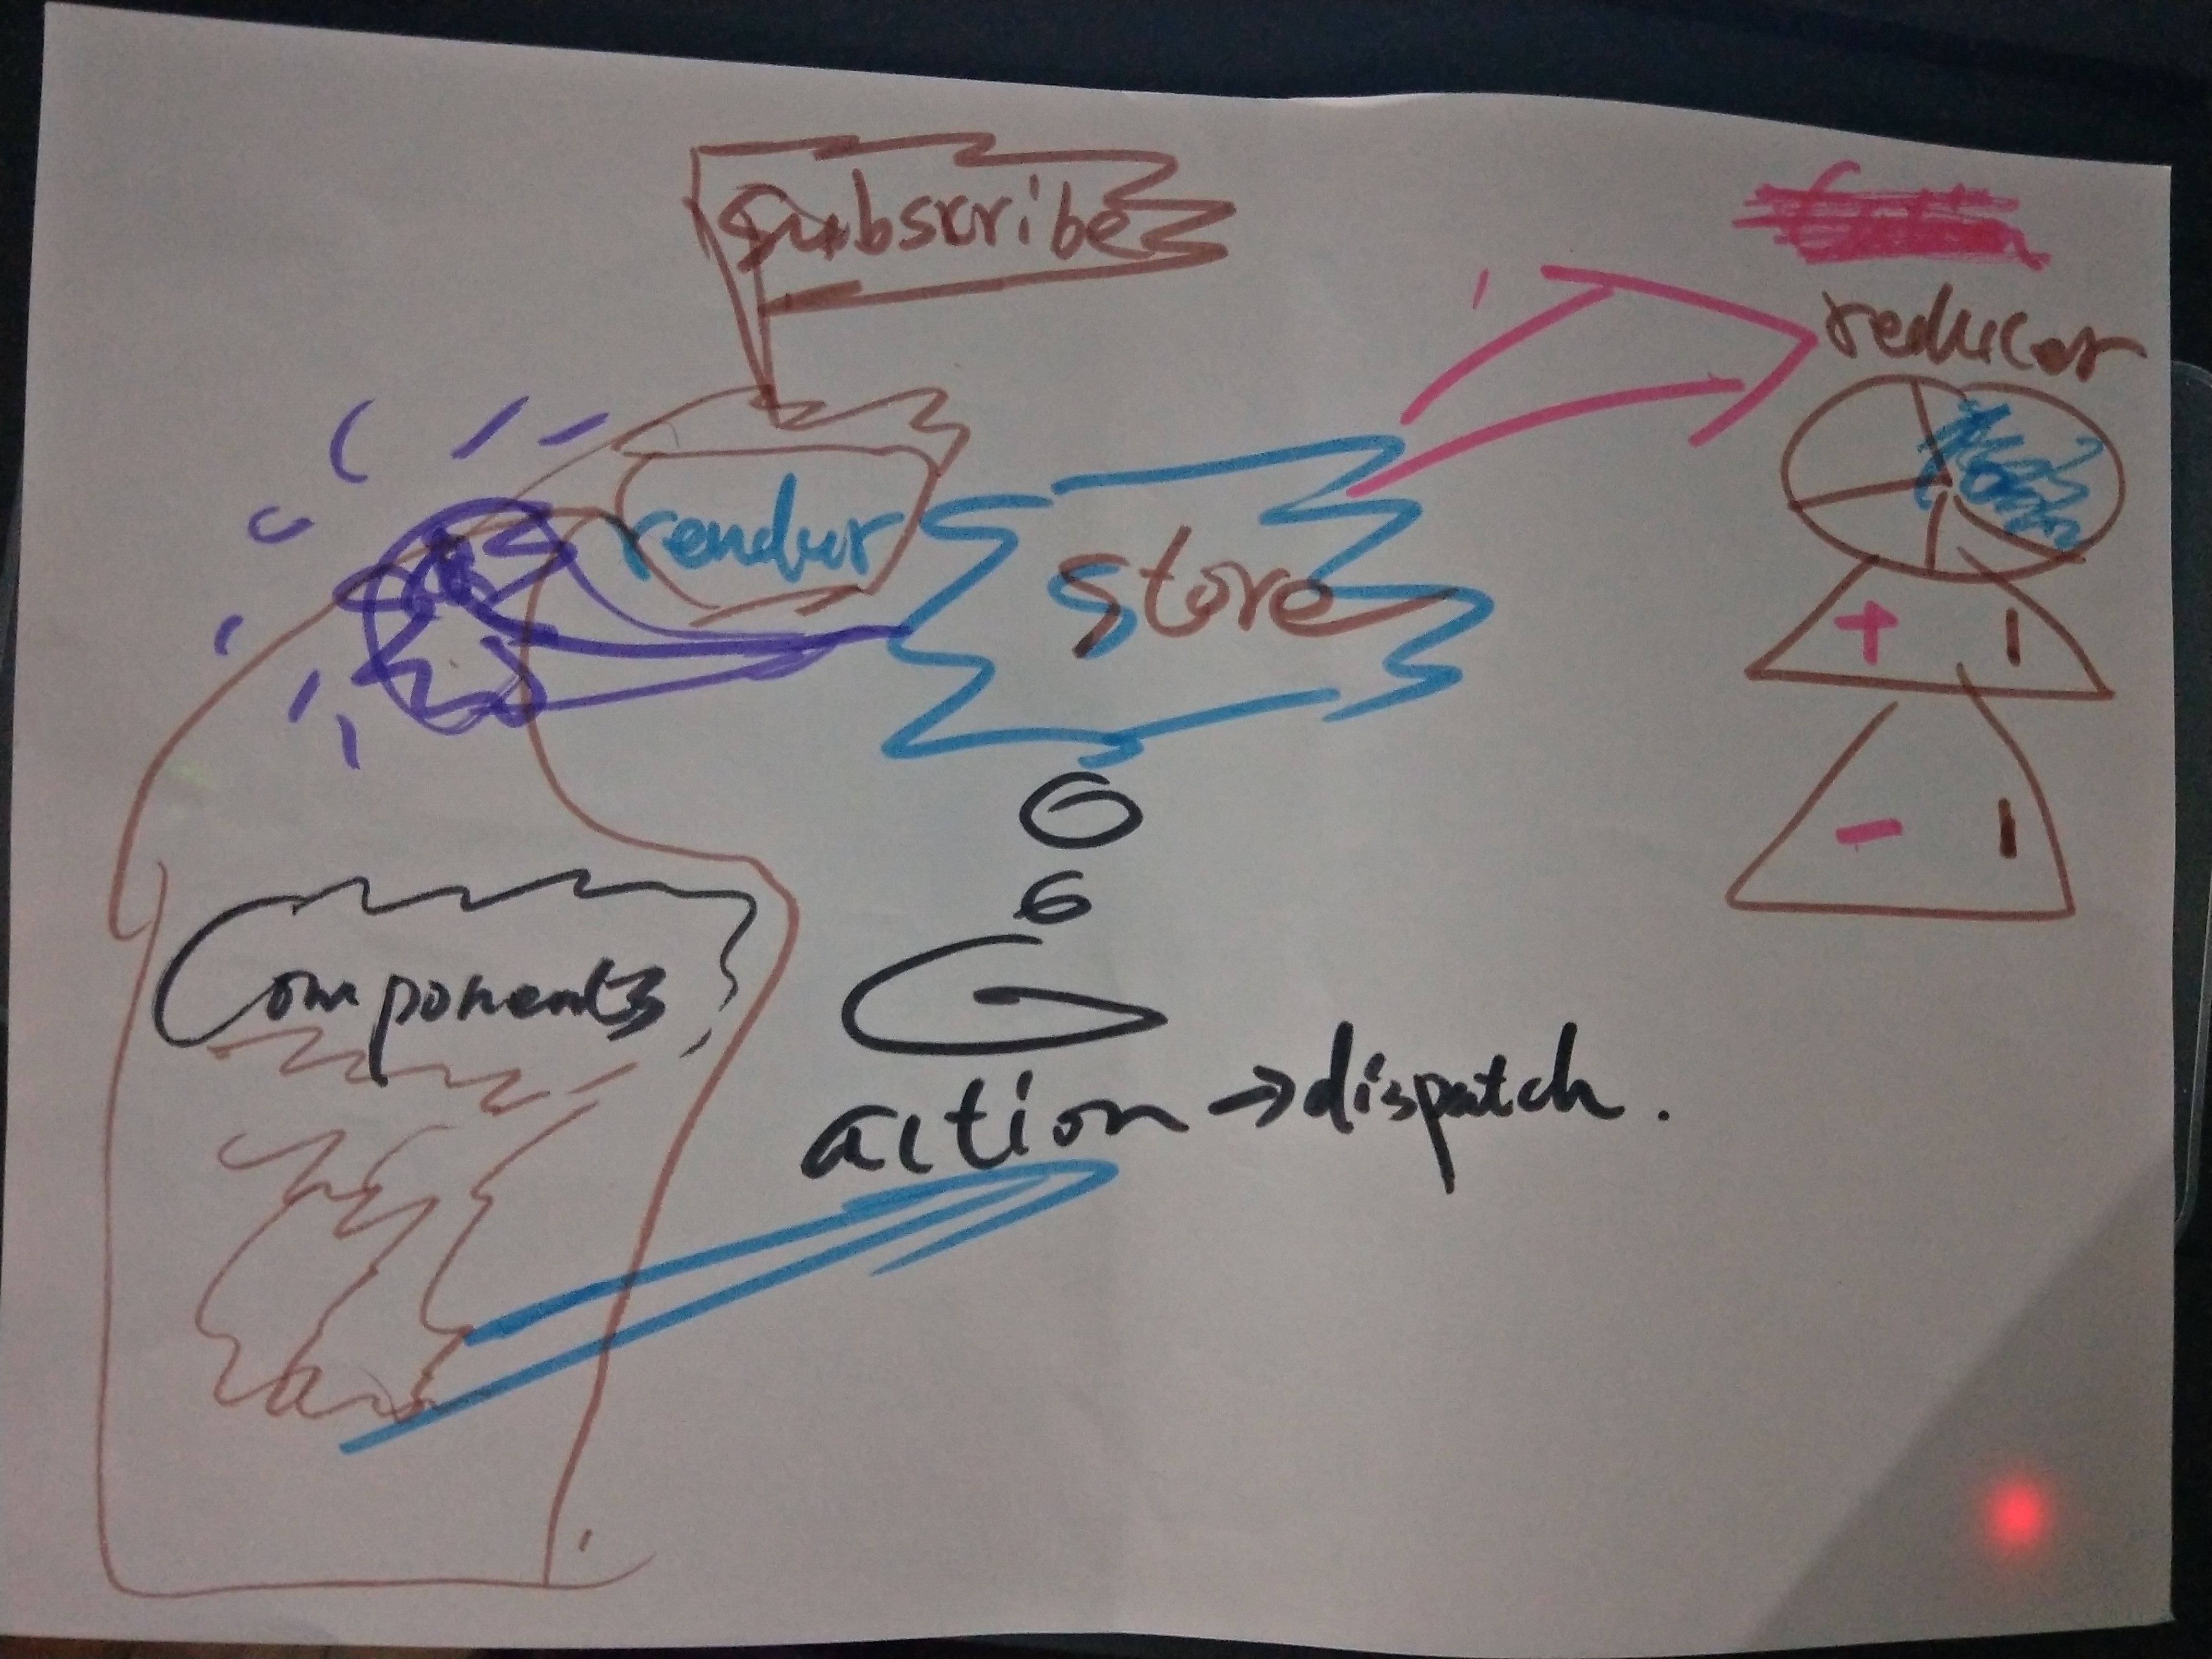 subscribe
reducer
render
store
+ 1
- 1
Components
action → dispatch.